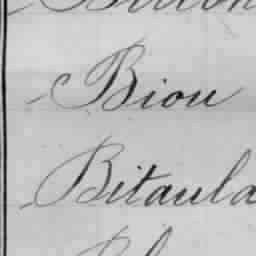 Biou
Bitaula